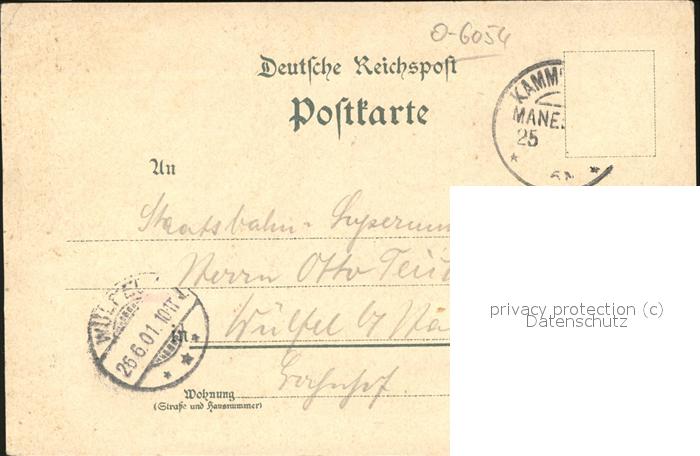 O-6054
Deutsche Reichspost
Postkarte
KAMM
MANE
25
An
Staatsbahn-
Herrn Otto
WÜLFEL
26.6.01. 10-11 V.
in
Wülfel b/
Bahnhof
Wohnung
(Straße und Hausnummer)
privacy protection (c)
Datenschutz